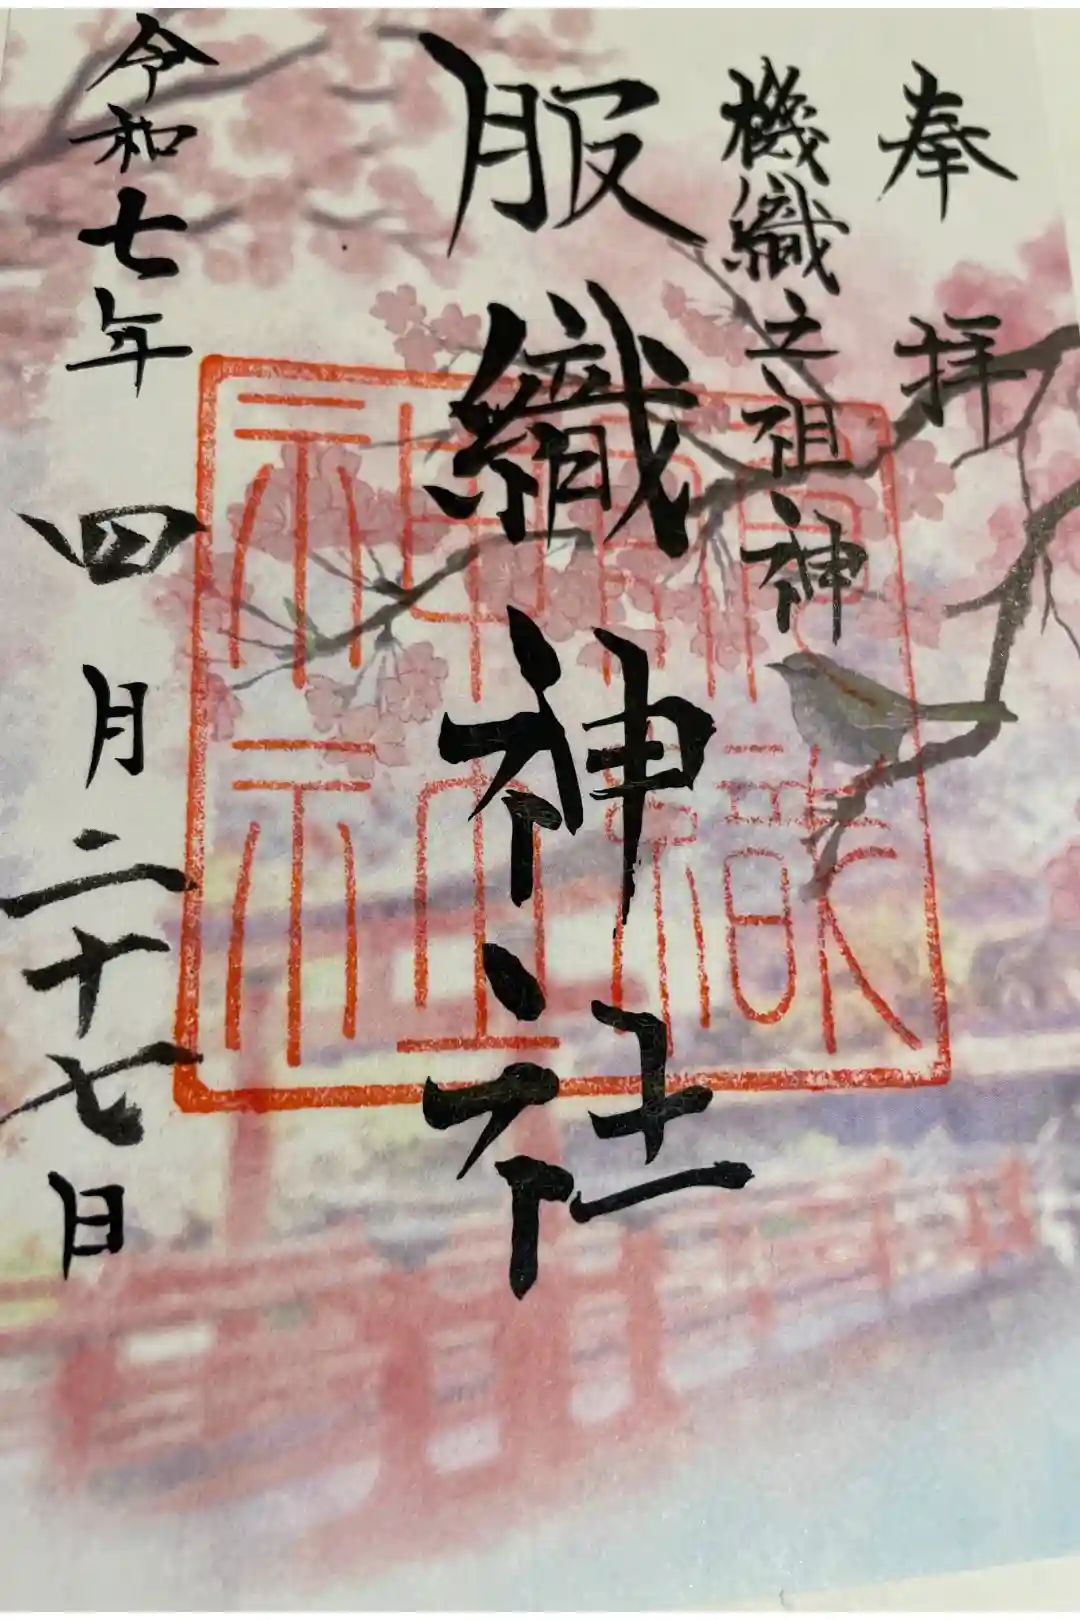 奉拝
機織之祖神
服織神社
令和七年四月二十七日